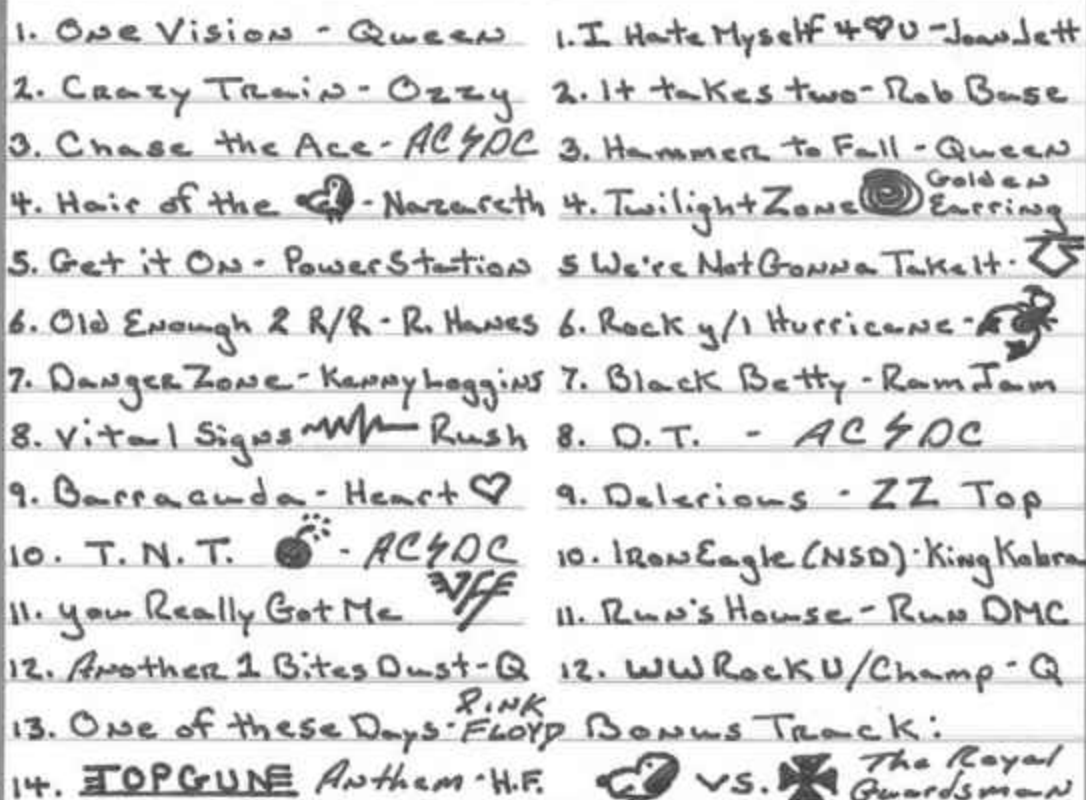 1. One Vision - Queen
2. Crazy Train - Ozzy
3. Chase the Ace - AC⚡DC
4. Hair of the - Nazareth
5. Get it On - Power Station
6. Old Enough 2 R/R - R. Hanes
7. Danger Zone - Kenny Loggins
8. Vital Signs Rush
9. Barracuda - Heart ♡
10. T.N.T. - AC⚡DC
11. You Really Got Me
12. Another 1 Bites Dust - Q
13. One of these Days - PINK FLOYD
14. TOPGUN Anthem - H.F.
1. I Hate Myself 4 ♡ U - Joan Jett
2. It takes two - Rob Base
3. Hammer to Fall - Queen
4. Twilight Zone Golden Earring
5 We're Not Gonna Take It -
6. Rock y/l Hurricane -
7. Black Betty - Ram Jam
8. D.T. - AC⚡DC
9. Delerious - ZZ Top
10. Iron Eagle (NSD) - King Kobra
11. Run's House - Run DMC
12. WWRock U/Champ - Q
Bonus Track:
vs. The Royal Guardsman